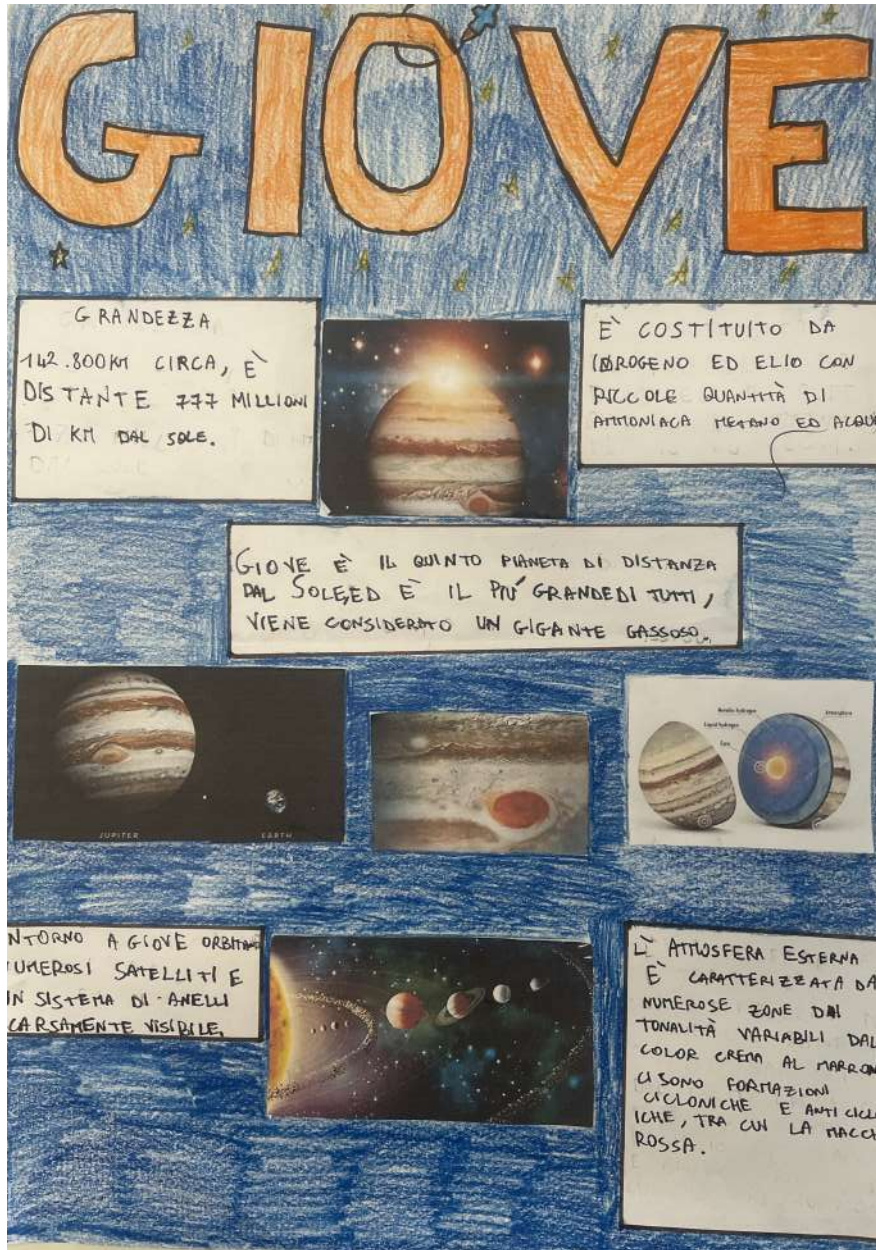 GIOVE
GRANDEZZA
142.800KM CIRCA, È
DISTANTE 777 MILLIONI
DI KM DAL SOLE.
E' COSTITUITO DA
IDROGENO ED ELIO CON
PICCOLE QUANTITÀ DI
AMMONIACA METANO ED ACQU
GIOVE È IL QUINTO PIANETA DI DISTANZA
DAL SOLE,ED È IL PIÙ GRANDE DI TUTTI,
VIENE CONSIDERATO UN GIGANTE GASSOSO.
JUPITER
EARTH
Metallic hydrogen
Atmosphere
Liquid hydrogen
Core
NTORNO A GIOVE ORBITA
UMEROSI SATELLITI E
UN SISTEMA DI ANELLI
CARSAMENTE VISIBILE.
L' ATMOSFERA ESTERNA
È CARATTERIZZATA DA
NUMEROSE ZONE DAI
TONALITÀ VARIABILI DAL
COLOR CREMA AL MARRON
CI SONO FORMAZIONI
CICLONICHE E ANTI CICLO
ICHE, TRA CUI LA MACCH
ROSSA.